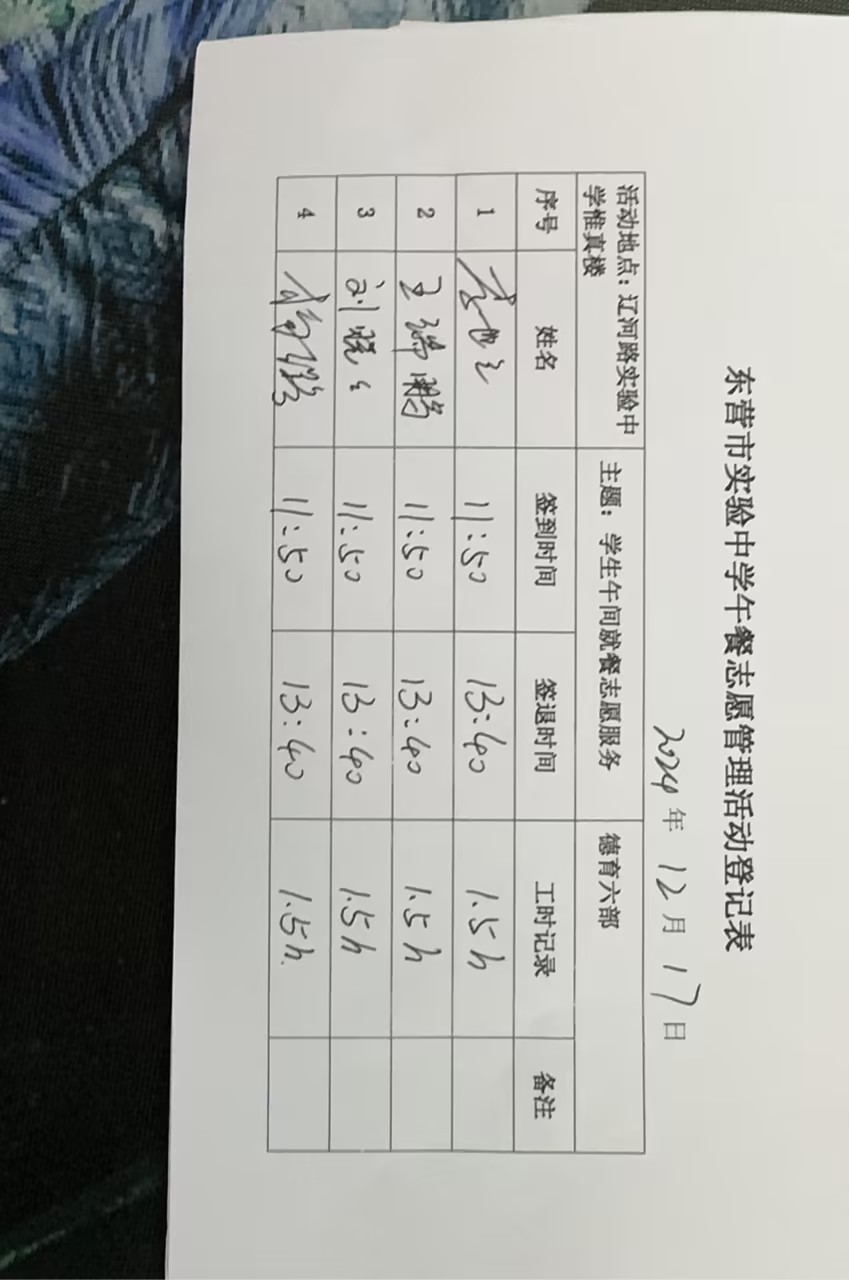 东营市实验中学午餐志愿管理活动登记表
2024年12月17日
活动地点：辽河路实验中学惟真楼 主题：学生午间就餐志愿服务 德育六部
序号 姓名 签到时间 签退时间 工时记录 备注
1 11:50 13:40 1.5h
2 王瑞鹏 11:50 13:40 1.5h
3 刘 11:50 13:40 1.5h
4 11:50 13:40 1.5h.